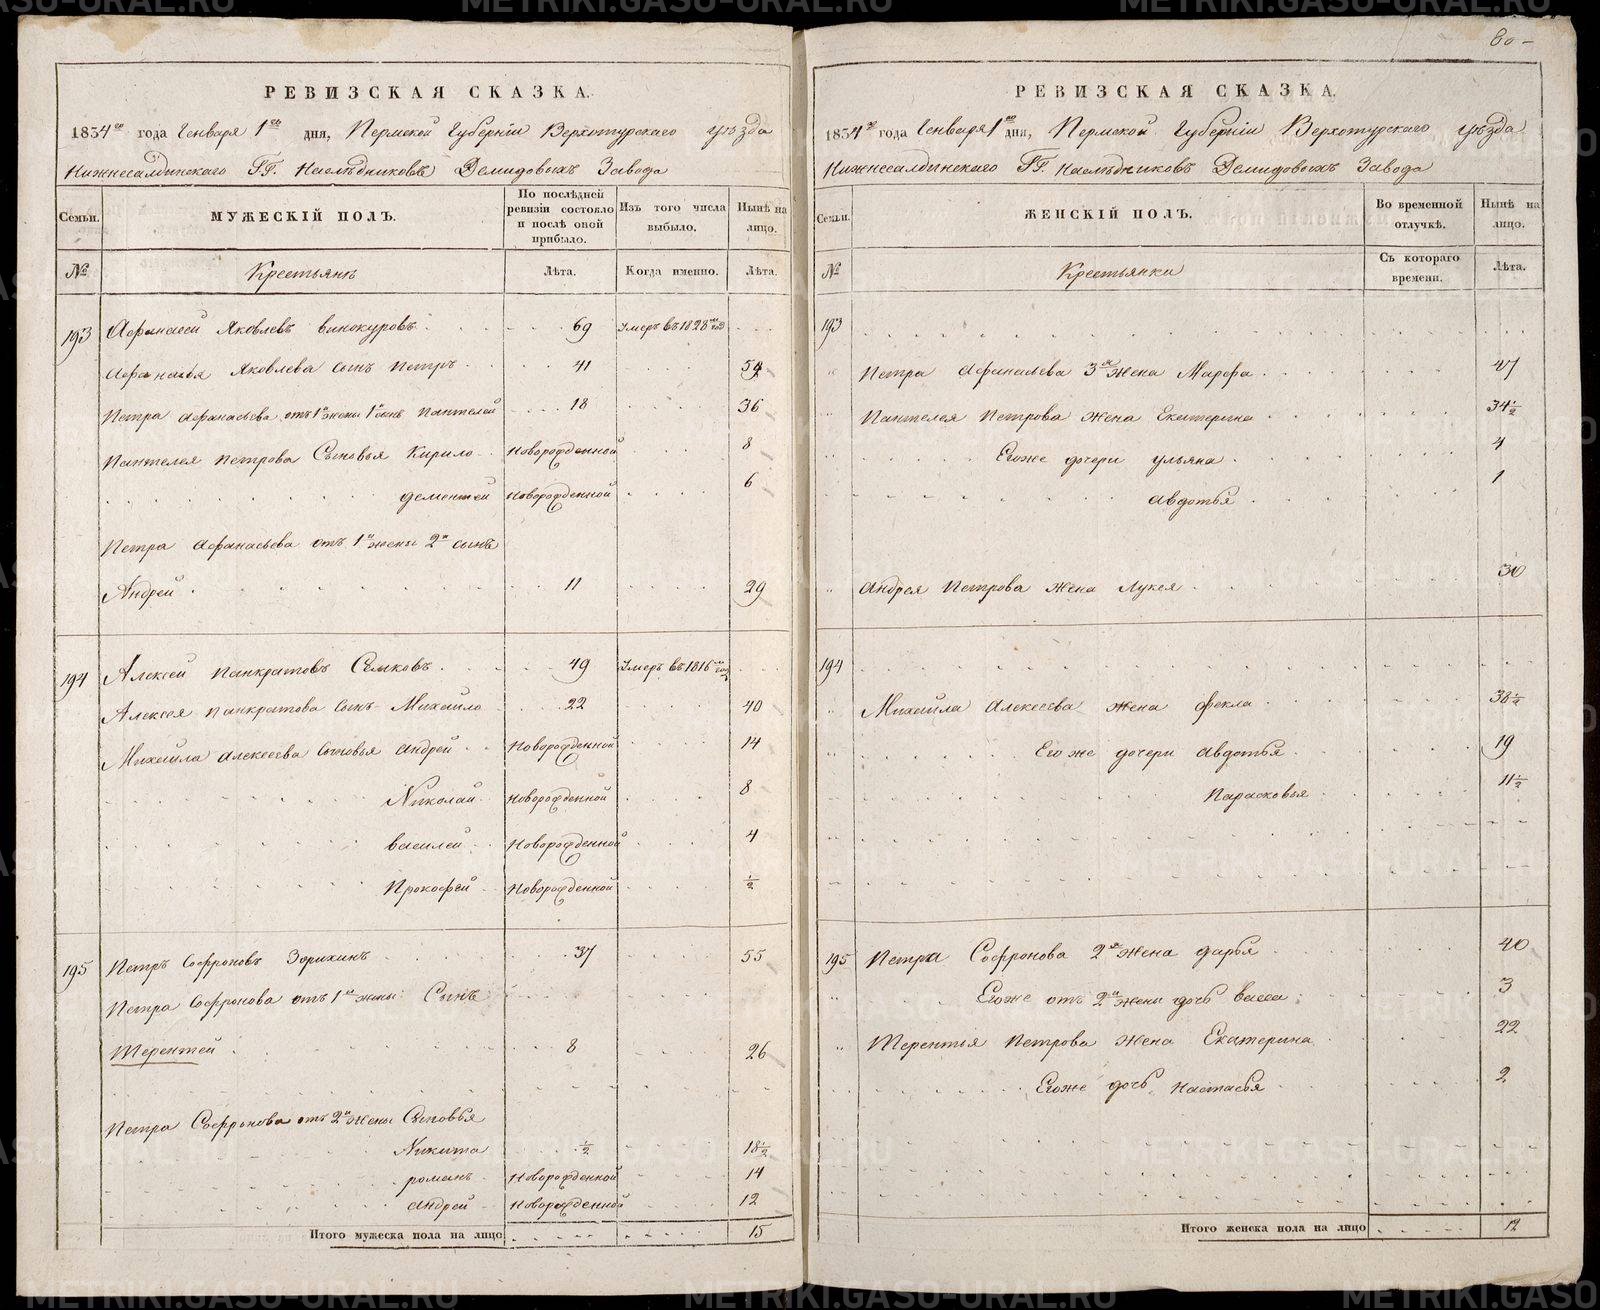 60-
РЕВИЗСКАЯ СКАЗКА.
1834го года Генваря 1го дня, Пермской Губерніи Верхотурскаго уѣзда
Нижнесалдинскаго ГГ. Наслѣдниковъ Демидовыхъ Завода
Семьи. МУЖЕСКІЙ ПОЛЪ. По послѣдней ревизіи состояло и послѣ оной прибыло. Изъ того числа выбыло. Нынѣ на лицо.
№ Крестьянъ Лѣта. Когда именно. Лѣта.
193 Афанасей Яковлевъ Винокуровъ 69 Умеръ въ 1828м год
Афанасья Яковлева сынъ Петръ 41 57
Петра Афанасьева отъ 1й жены 1й сынъ Пантелей 18 36
Пантелея Петрова Сыновья Кирило Новорожденной 8
Дементей Новорожденной 6
Петра Афанасьева отъ 1й жены 2й сынъ
Андрей 11 29
194 Алексей Панкратовъ Семковъ 49 Умеръ въ 1816м год
Алексея Панкратова Сынъ Михайло 22 40
Михайла Алексеева Сыновья Андрей Новорожденной 14
Николай Новорожденной 8
Василей Новорожденной 4
Прокофей Новорожденной ½
195 Петръ Софроновъ Зорихинъ 37 55
Петра Софронова отъ 1й жены Сынъ
Терентей 8 26
Петра Софронова отъ 2й жены Сыновья
Никита ½ 18½
Романъ Новорожденной 14
Андрей Новорожденной 12
Итого мужеска пола на лицо 15
РЕВИЗСКАЯ СКАЗКА.
1834го года Генваря 1го дня, Пермской Губерніи Верхотурскаго уѣзда
Нижнесалдинскаго ГГ. Наслѣдниковъ Демидовыхъ Завода
Семьи. ЖЕНСКІЙ ПОЛЪ. Во временной отлучкѣ. Нынѣ на лицо.
№ Крестьянки Съ котораго времени. Лѣта.
193
Петра Афанасьева 3я жена Марфа 47
Пантелея Петрова жена Екатерина 34½
Егоже дочери Ульяна 4
Авдотья 1
Андрея Петрова жена Лукея 30
194
Михайла Алексеева жена Фекла 38½
Его же дочери Авдотья 19
Парасковья 11½
195 Петра Софронова 2я жена Дарья 40
Егоже отъ 2й жены дочь Васса 3
Терентья Петрова жена Екатерина 22
Егоже дочь Настасья 2
Итого женска пола на лицо 12
METRIKI.GASO-URAL.RU